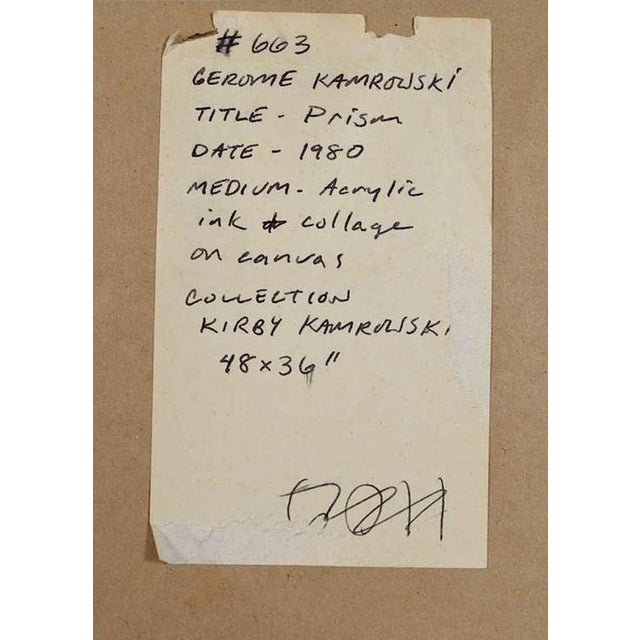 # 663
GEROME KAMROWSKI
TITLE - Prism
DATE - 1980
MEDIUM - Acrylic
ink & collage
on canvas
COLLECTION
KIRBY KAMROWSKI
48 x 36"